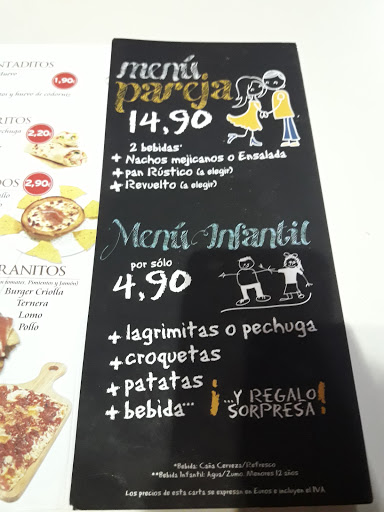 NTADITOS
1,90€
y huevo de codorniz
RITOS
2,20€
DOS
2,90€
RANITOS
Burger Criolla
Ternera
Lomo
Pollo
menú
pareja
14,90
2 bebidas*
+ Nachos mejicanos o Ensalada
+ pan Rústico (a elegir)
+ Revuelto (a elegir)
Menú Infantil
por sólo
4,90
+ lagrimitas o pechuga
+ croquetas
+ patatas
+ bebida***
¡...Y REGALO
SORPRESA!
*Bebida: Caña Cerveza/Refresco
**Bebida Infantil: Agua/Zumo. Menores 12 años
Los precios de esta carta se expresan en Euros e incluyen el IVA